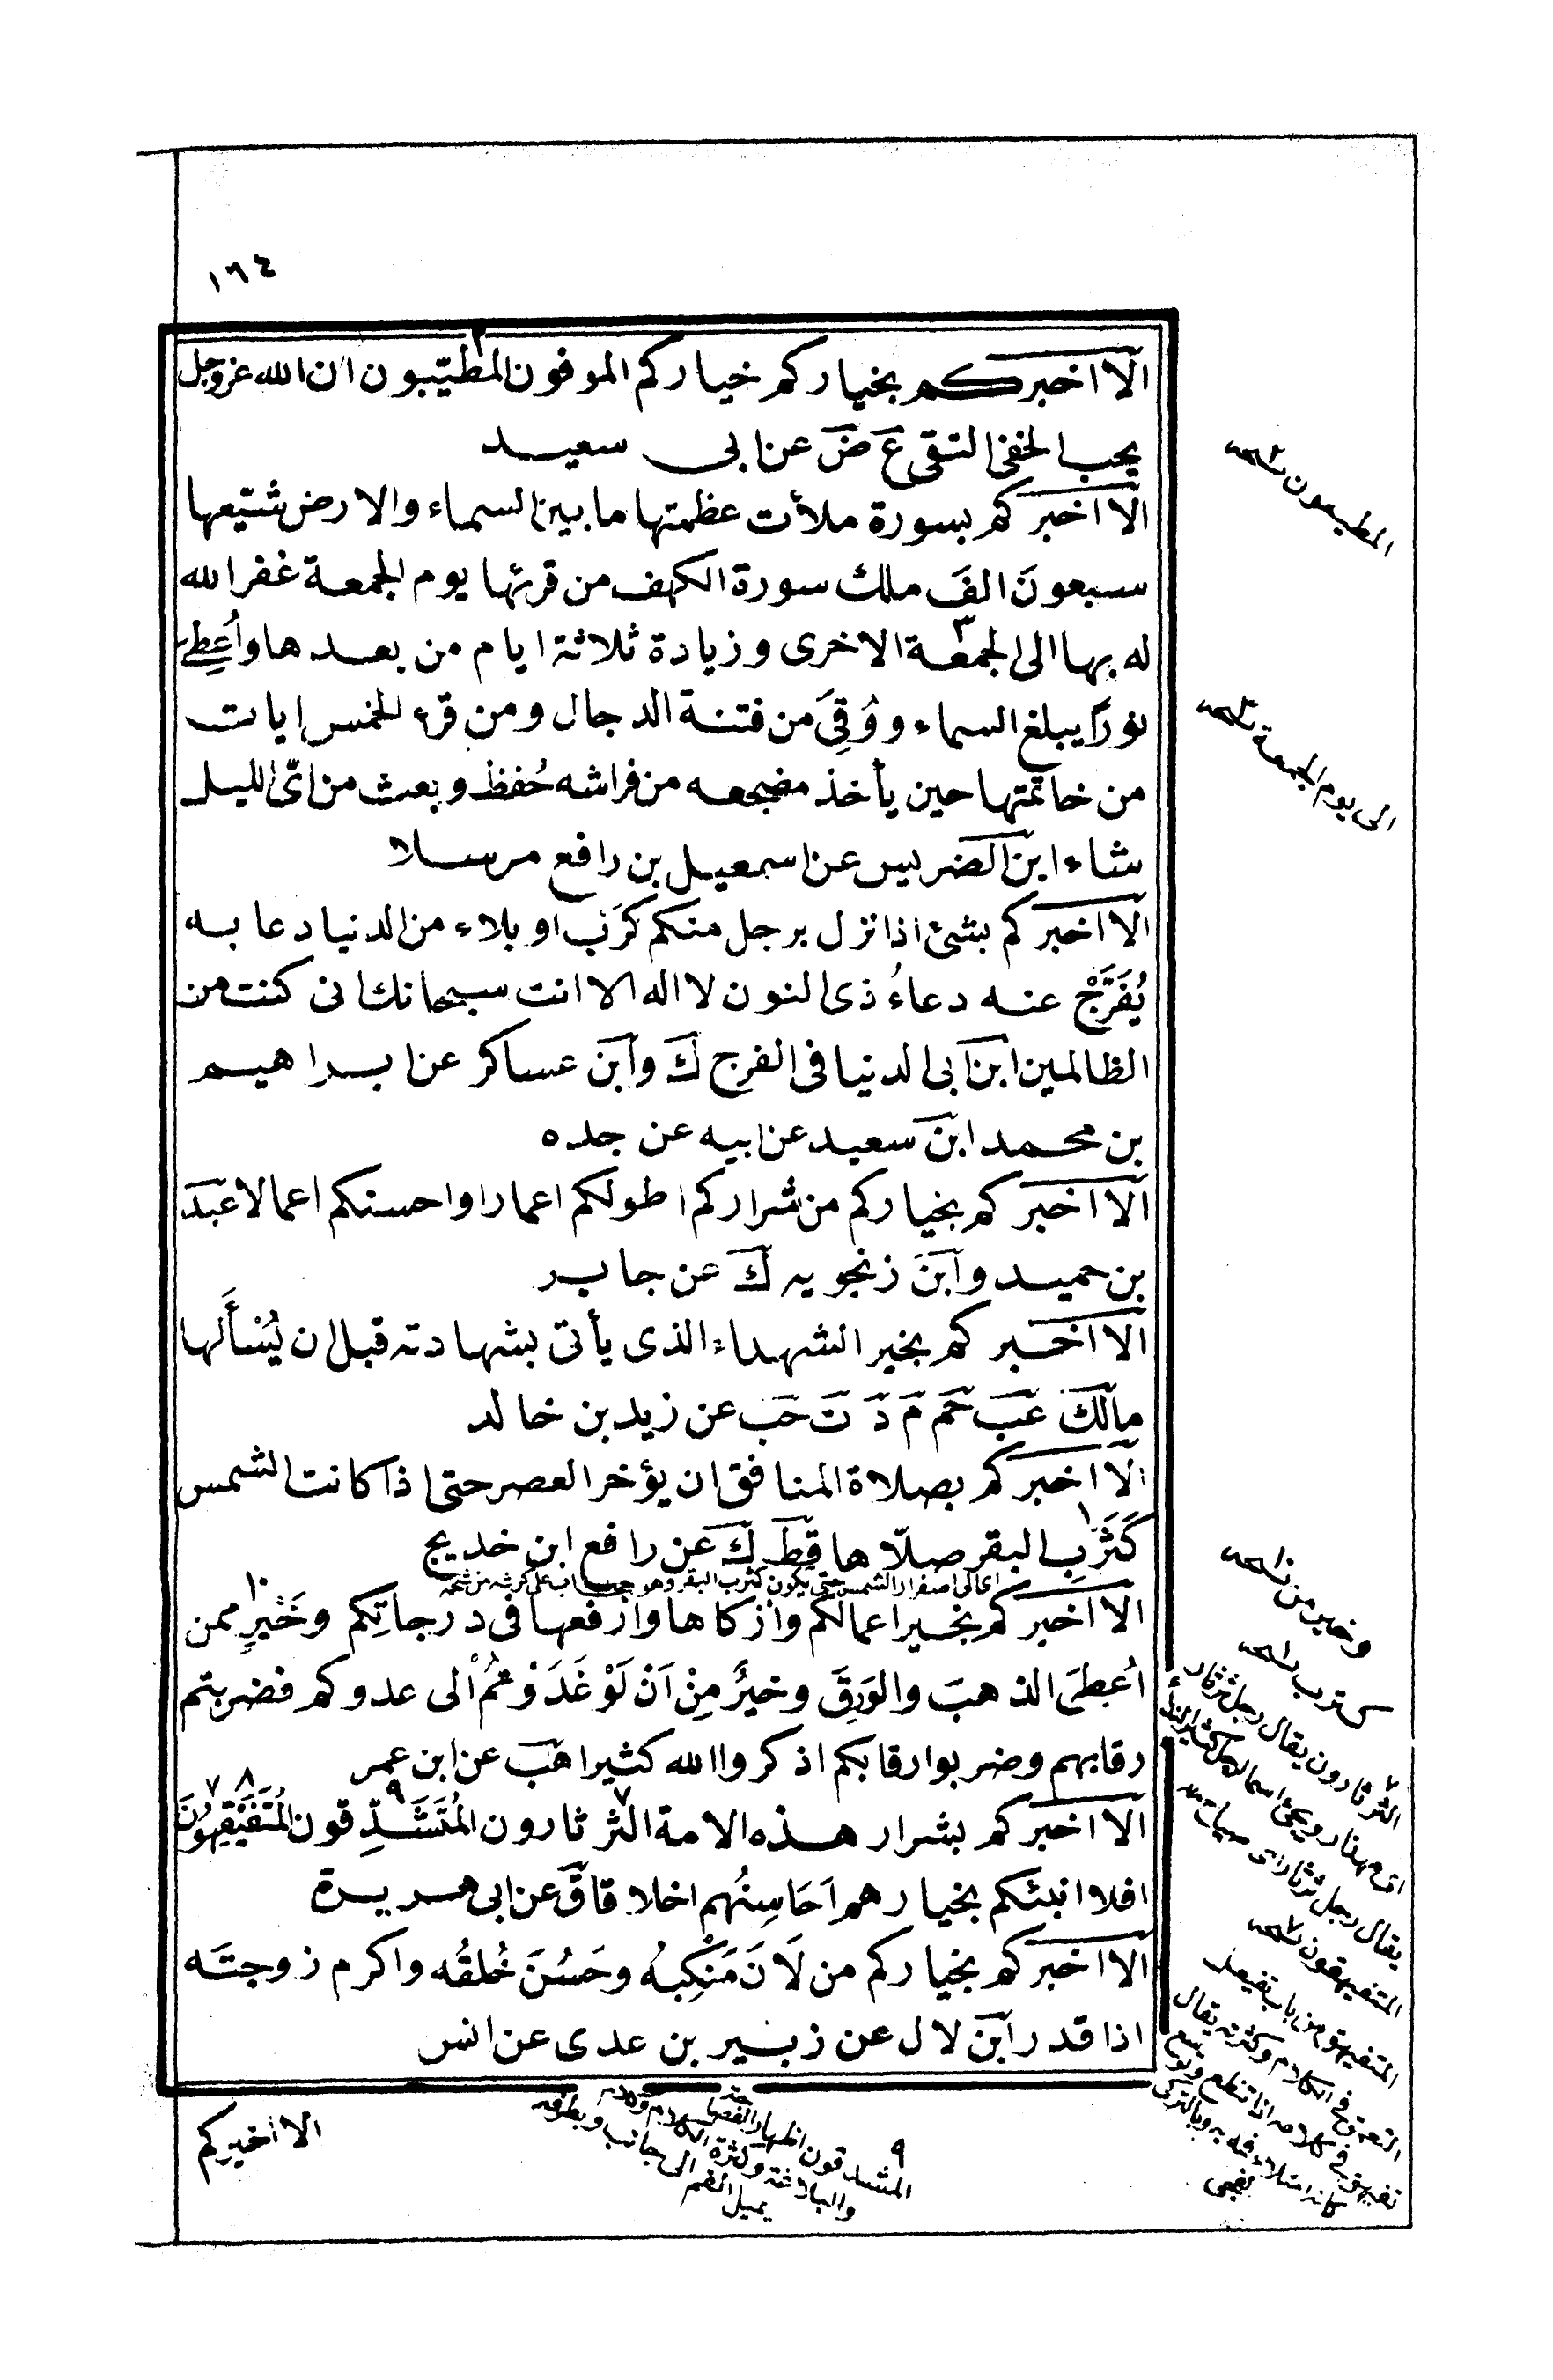 ١٦٤
الا اخبركم بخياركم خياركم الموفون المطيّبون ان الله عزوجل
يحب الخفى التقى ع ض عن ابى سعيد
الا اخبركم بسورة ملأت عظمتها ما بين السماء والارض شيّعها
سبعونَ الفَ ملك سورة الكهف من قرئها يوم الجمعة غفر الله
له بها الى الجمعة الاخرى وزيادة ثلاثة ايام من بعدها واُعطِىَ
نورًا يبلغ السماء ووُقِىَ من فتنة الدجال ومن قرء الخمس ايات
من خاتمتها حين يأخذ مضجعه من فراشه حُفظ وبعث من اىّ الليل
شاء ابن الضريس عن اسمعيل بن رافع مرسلا
الا اخبركم بشئ اذا نزل برجل منكم كَرَب او بلاء من الدنيا دعا به
يُفَرَّجْ عنه دعاءُ ذى النون لا اله الا انت سبحانك انى كنت من
الظالمين ابن ابى الدنيا فى الفرج ك وابن عساكر عن ابراهيم
بن محمد ابن سعيد عن ابيه عن جده
الا اخبركم بخياركم من شراركم اطولكم اعمارا واحسنكم اعمالا عبد
بن حميد وابن زنجويه ك عن جابر
الا اخبركم بخير الشهداء الذى يأتى بشهادته قبل ان يُسْأَلَها
مالك عب حم م د ت حب عن زيد بن خالد
الا اخبركم بصلاة المنافق ان يؤخر العصر حتى اذا كانت الشمس
كَثَرْبِ البقر صلّاها قط ك عن رافع ابن خديج
اى الى اصفرار الشمس حتى يكون كثرب البقر وهو
الا اخبركم بخير اعمالكم وازكاها وارفعها فى درجاتِكم وخَيْرٍ ممن
اُعطِىَ الذهبَ والوَرِقَ وخيرٌ مِنْ اَنْ لَوْ غَدَوْتُمْ الى عدوكم فضربتم
رقابهم وضربوا رقابكم اذكروا الله كثيرا هب عن ابن عمر
الا اخبركم بشرار هذه الامة الثرثارون المُتَشَدِّقون المُتَفَيْقِهُونَ
افلا انبئكم بخيارهم اَحَاسِنُهم اخلاقا ق عن ابى هريرة
الا اخبركم بخياركم من لَانَ مَنْكِبُهُ وحَسُنَ خُلقُه واكرم زوجتَه
اذا قدر ابن لال عن زبير بن عدى عن انس
الا اخبركم
المطيعون نسخه
الى يوم الجمعة نسخه
وخير من نسخه
كترب نسخه
الثرثارون يقال رجل ثرثار
اى مهذار
يقال رجل ثرثار اى صياح
المتفيهقون نسخه
المتفيهق من باب تفيعل
التعمق فى الكلام وكثرته يقال
تفيهق فى كلامه اذا تنطع وتوسع
كانه امتلاء فمه به وبالتركى
٩
المتشدقون اظهار الفصاحة
والبلاغة وكثرة الكلام
يميل الفم الى جانب